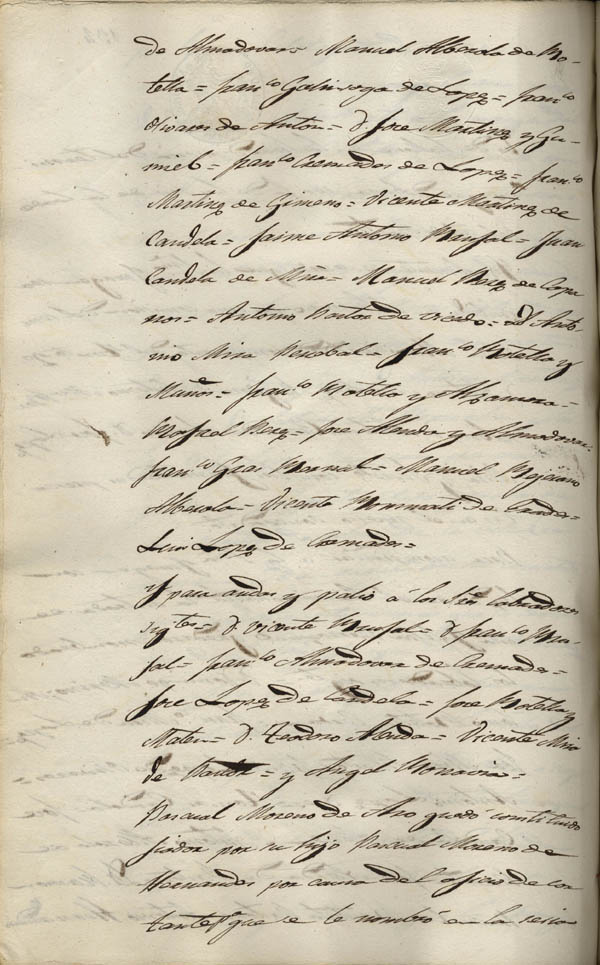 de Almodovar= Manuel Alberola de Bo-
tella= Fran.co Galinsoga de Lopez= Fran.co
Olivares de Anton= D. Jose Martinez y Gu-
miel= Fran.co Cremades de Lopez= Fran.co
Martinez de Gimeno= Vicente Martinez de
Candela= Jaime Antonio Maysal= Juan
Candela de Mira= Manuel Perez de
Antonio Pastor de= D. Anto-
nio Mira Percebal= Fran.co Botella y
Muños= Fran.co Botella y Alzamora=
Perez= Jose Alenda y Almodovar=
Fran.co Gras Bernal= Manuel
Alberola= Vicente de
Luis Lopez de Cremades=
Y para andas y palio á los Sres labradores
sigtes= D. Vicente D. Fran.co
Fran.co Almodovar de Cremades=
Jose Lopez de Candela= Jose Botella y
Mateu= D. Teodoro Alenda= Vicente Mira
de Pastor= y Angel
Pascual Moreno de Aro quedó constituido
fiador por su hijo Pascual Moreno de
Hernandes por causa del oficio de con
tante que se le nombró en la sesion